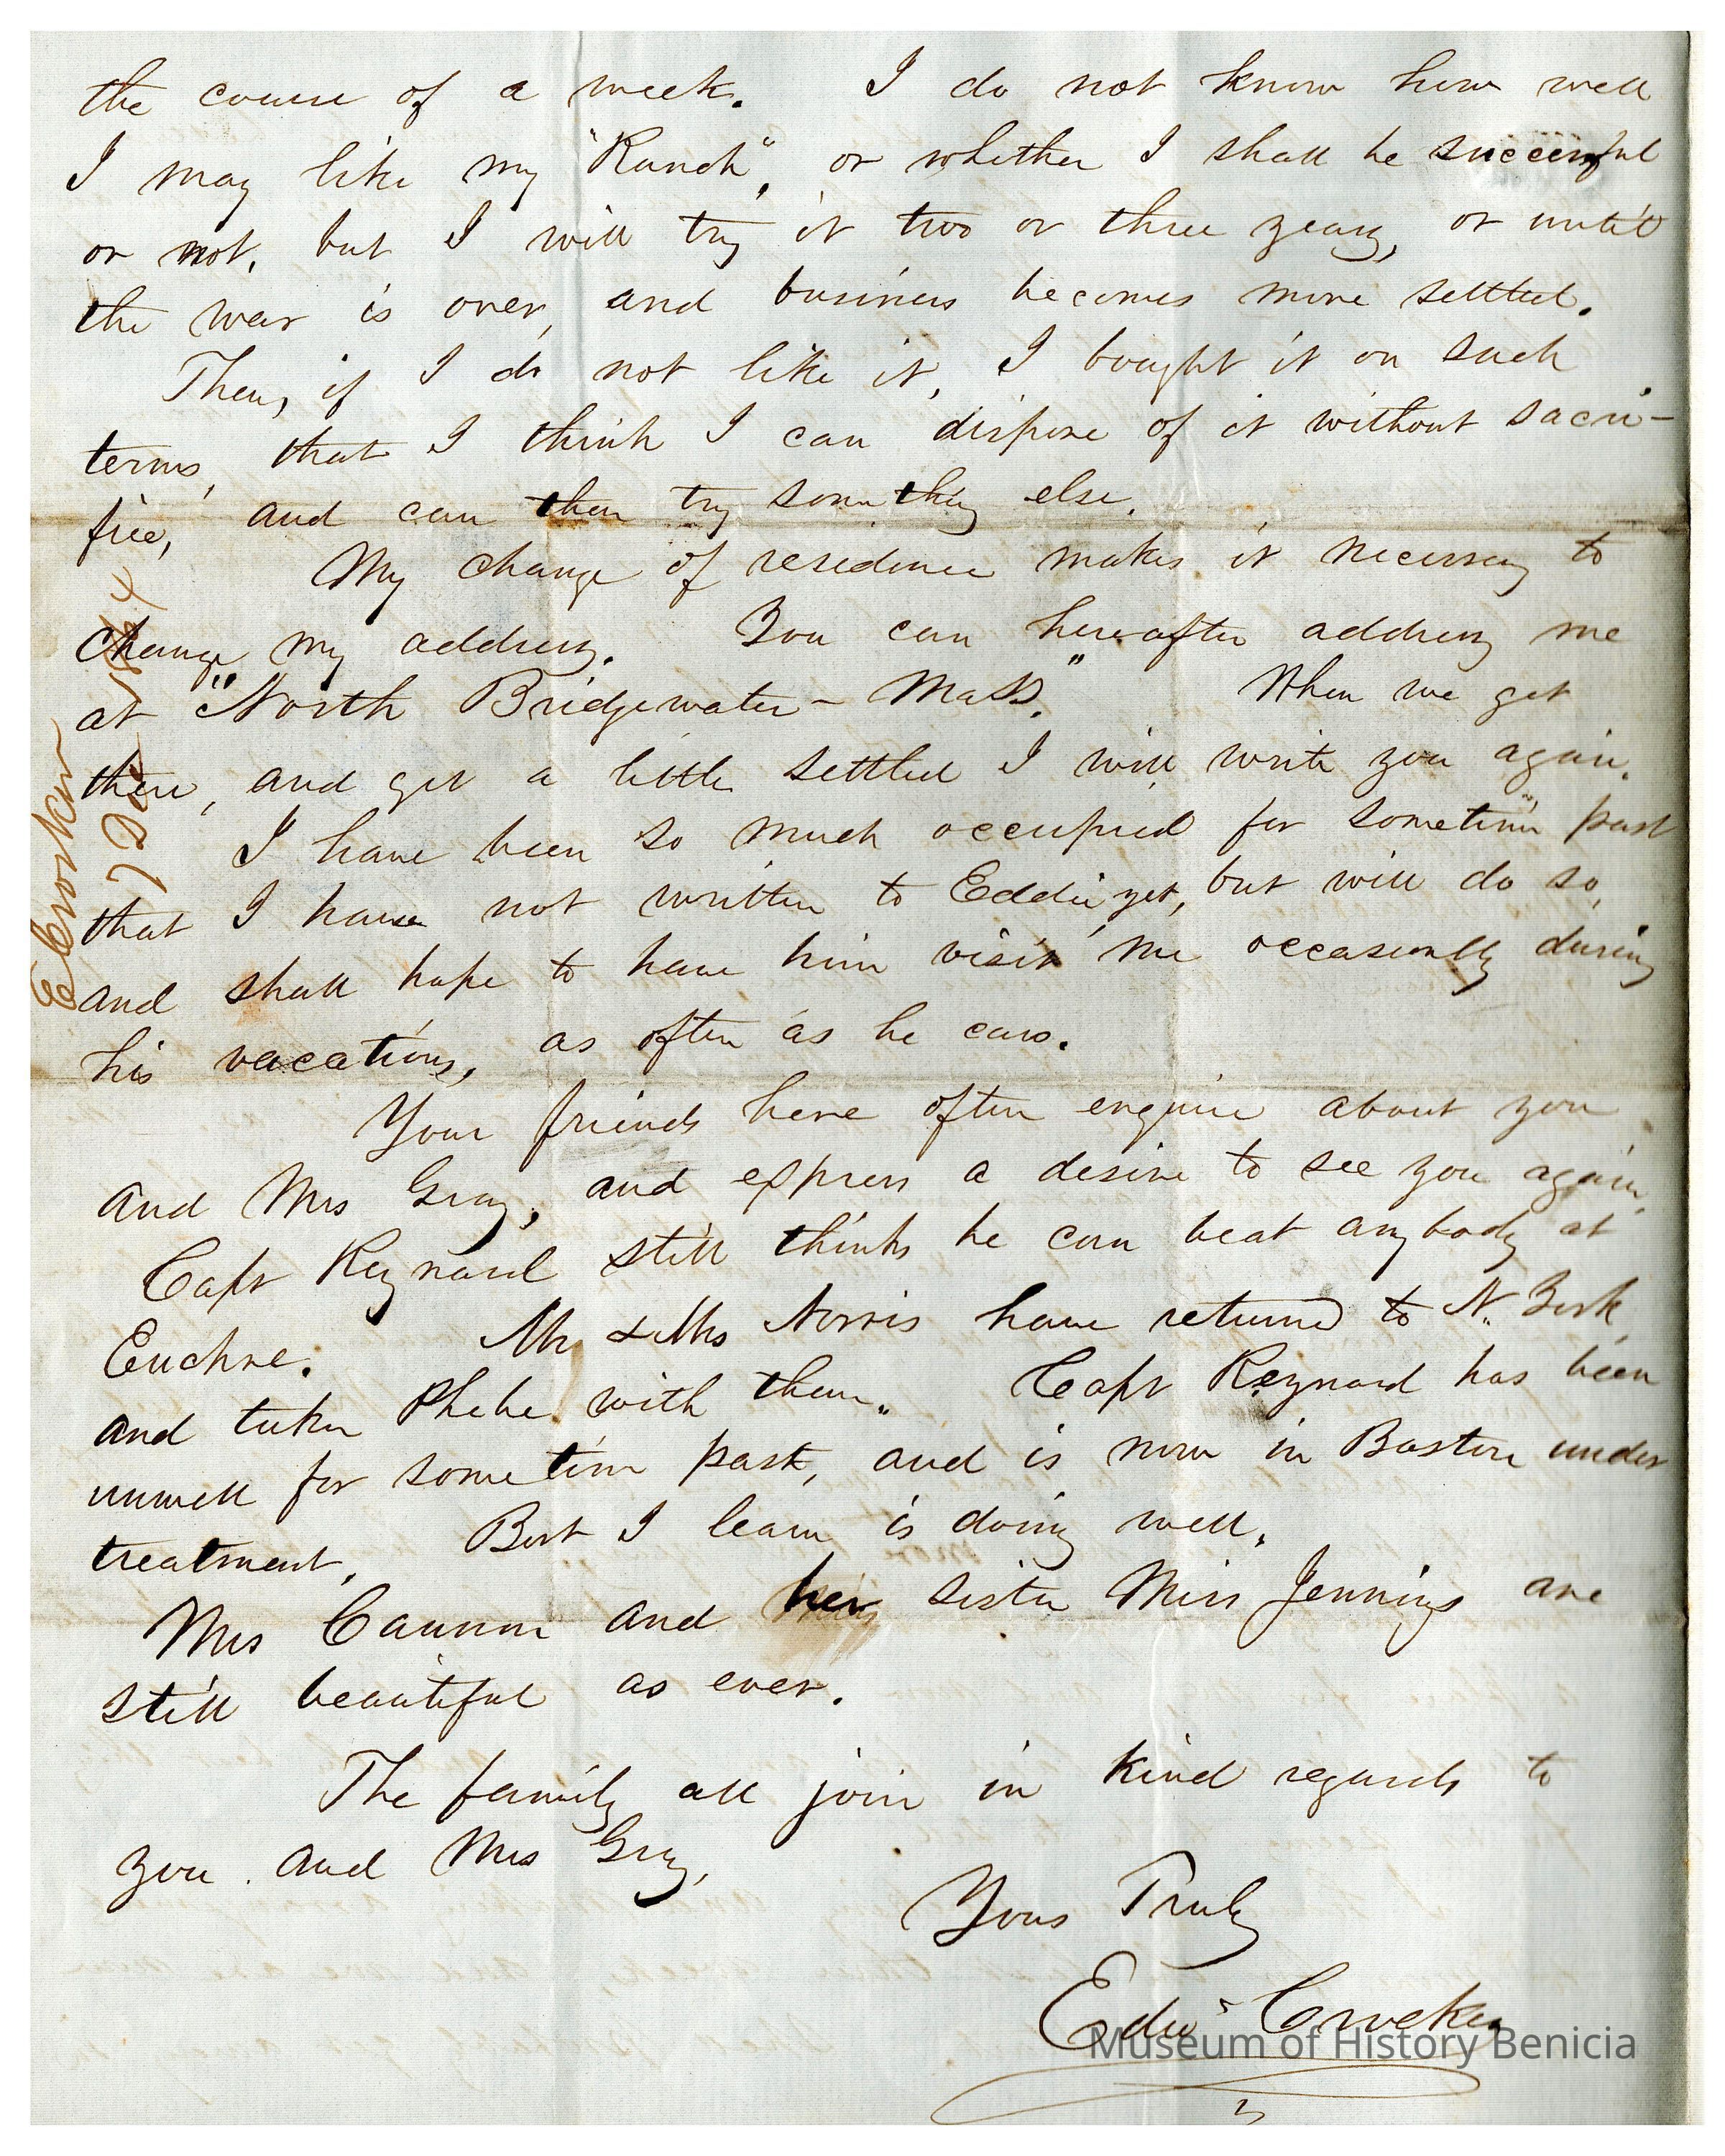 the course of a week. I do not know how well
I may like my "Ranch", or whether I shall be successful
or not, but I will try it two or three years, or until
the war is over, and business becomes more settled.
Then, if I do not like it, I bought it on such
terms, that I think I can dispose of it without sacri-
fice, and can then try something else.
My change of residence makes it necessary to
change my address. You can hereafter address me
at "North Bridgewater - Mass." When we get
there, and get a little settled I will write you again.
I have been so much occupied for sometime past
that I have not written to Eddie yet, but will do so,
and shall hope to have him visit me occasionally during
his vacations, as often as he can.
Your friends here often enquire about you
and Mrs Gray, and express a desire to see you again.
Capt Reynard still thinks he can beat anybody at
Euchre. Mr & Mrs Norris have returned to N. York
and taken Phebe with them. Capt Reynard has been
unwell for sometime past, and is now in Boston under
treatment. But I learn is doing well.
Mrs Cannon and her sister Miss Jennings are
still beautiful as ever.
The family all join in kind regards to
you and Mrs Gray.
Yours Truly
Edw Crocker
E Crocker
7 Dec 1864
Museum of History Benicia